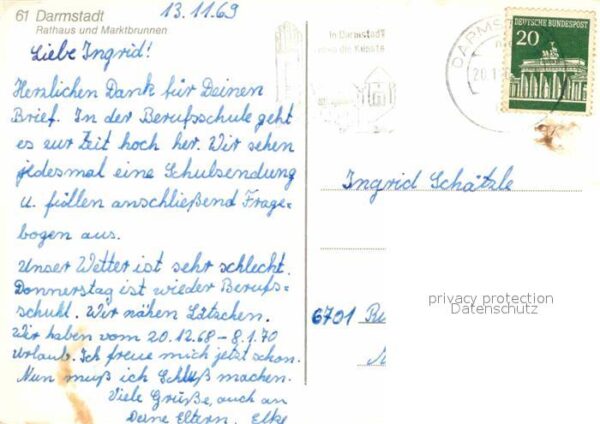 61 Darmstadt
Rathaus und Marktbrunnen
13.11.69
Liebe Ingrid!
Herzlichen Dank für Deinen
Brief. In der Berufsschule geht
es zur Zeit hoch her. Wir sehen
jedesmal eine Schulsendung
u. füllen anschließend Frage=
bogen aus.
Unser Wetter ist sehr schlecht.
Donnerstag ist wieder Berufs=
schuhl. Wir nähen Lätzchen.
Wir haben vom 20.12.68 - 8.1.70
Urlaub. Ich freue mich jetzt schon.
Nun muß ich Schluß machen.
Viele Grüße, auch an
Deine Eltern, Elke
In Darmstadt
Künste
DARMST
20.1
DEUTSCHE BUNDESPOST
20
Ingrid Schätzle
6701
privacy protection
Datenschutz